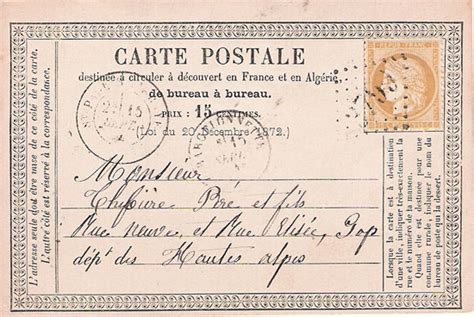 CARTE POSTALE
destinée à circuler à découvert en France et en Algérie,
de bureau à bureau.
PRIX : 15 CENTIMES.
(Loi du 20 Décembre 1872.)
REPUB. FRANC.
Monsieur
Père et fils
Rue neuve, et Rue Elisée, Gap
dépt des Hautes alpes
L'adresse seule doit être mise de ce côté de la carte.
L'autre côté est réservé à la correspondance.
Lorsque la carte est à destination
d'une ville, indiquer très-exactement la
rue et le numéro de la maison.
Quand elle est destinée pour une
commune rurale, indiquer le nom du
bureau de poste qui la dessert.